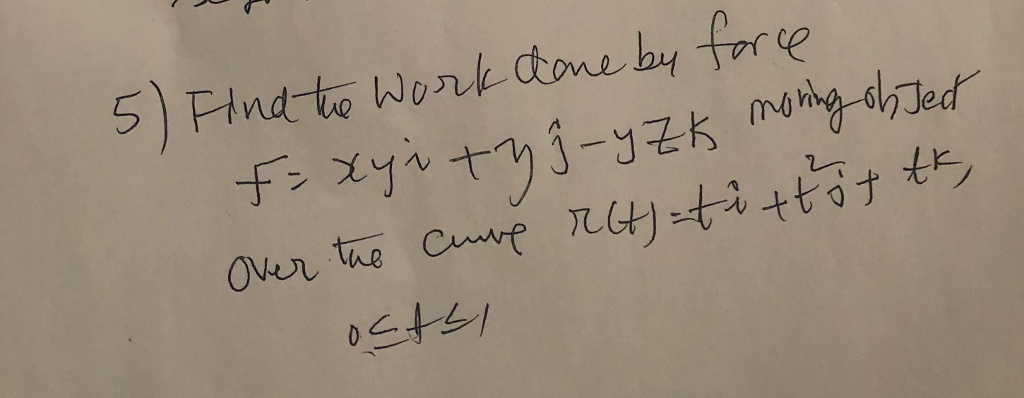 5) Find the Work done by force
F = xyi + yj - yzk moving object
over the curve r(t) = ti + t²j + tk,
0 ≤ t ≤ 1